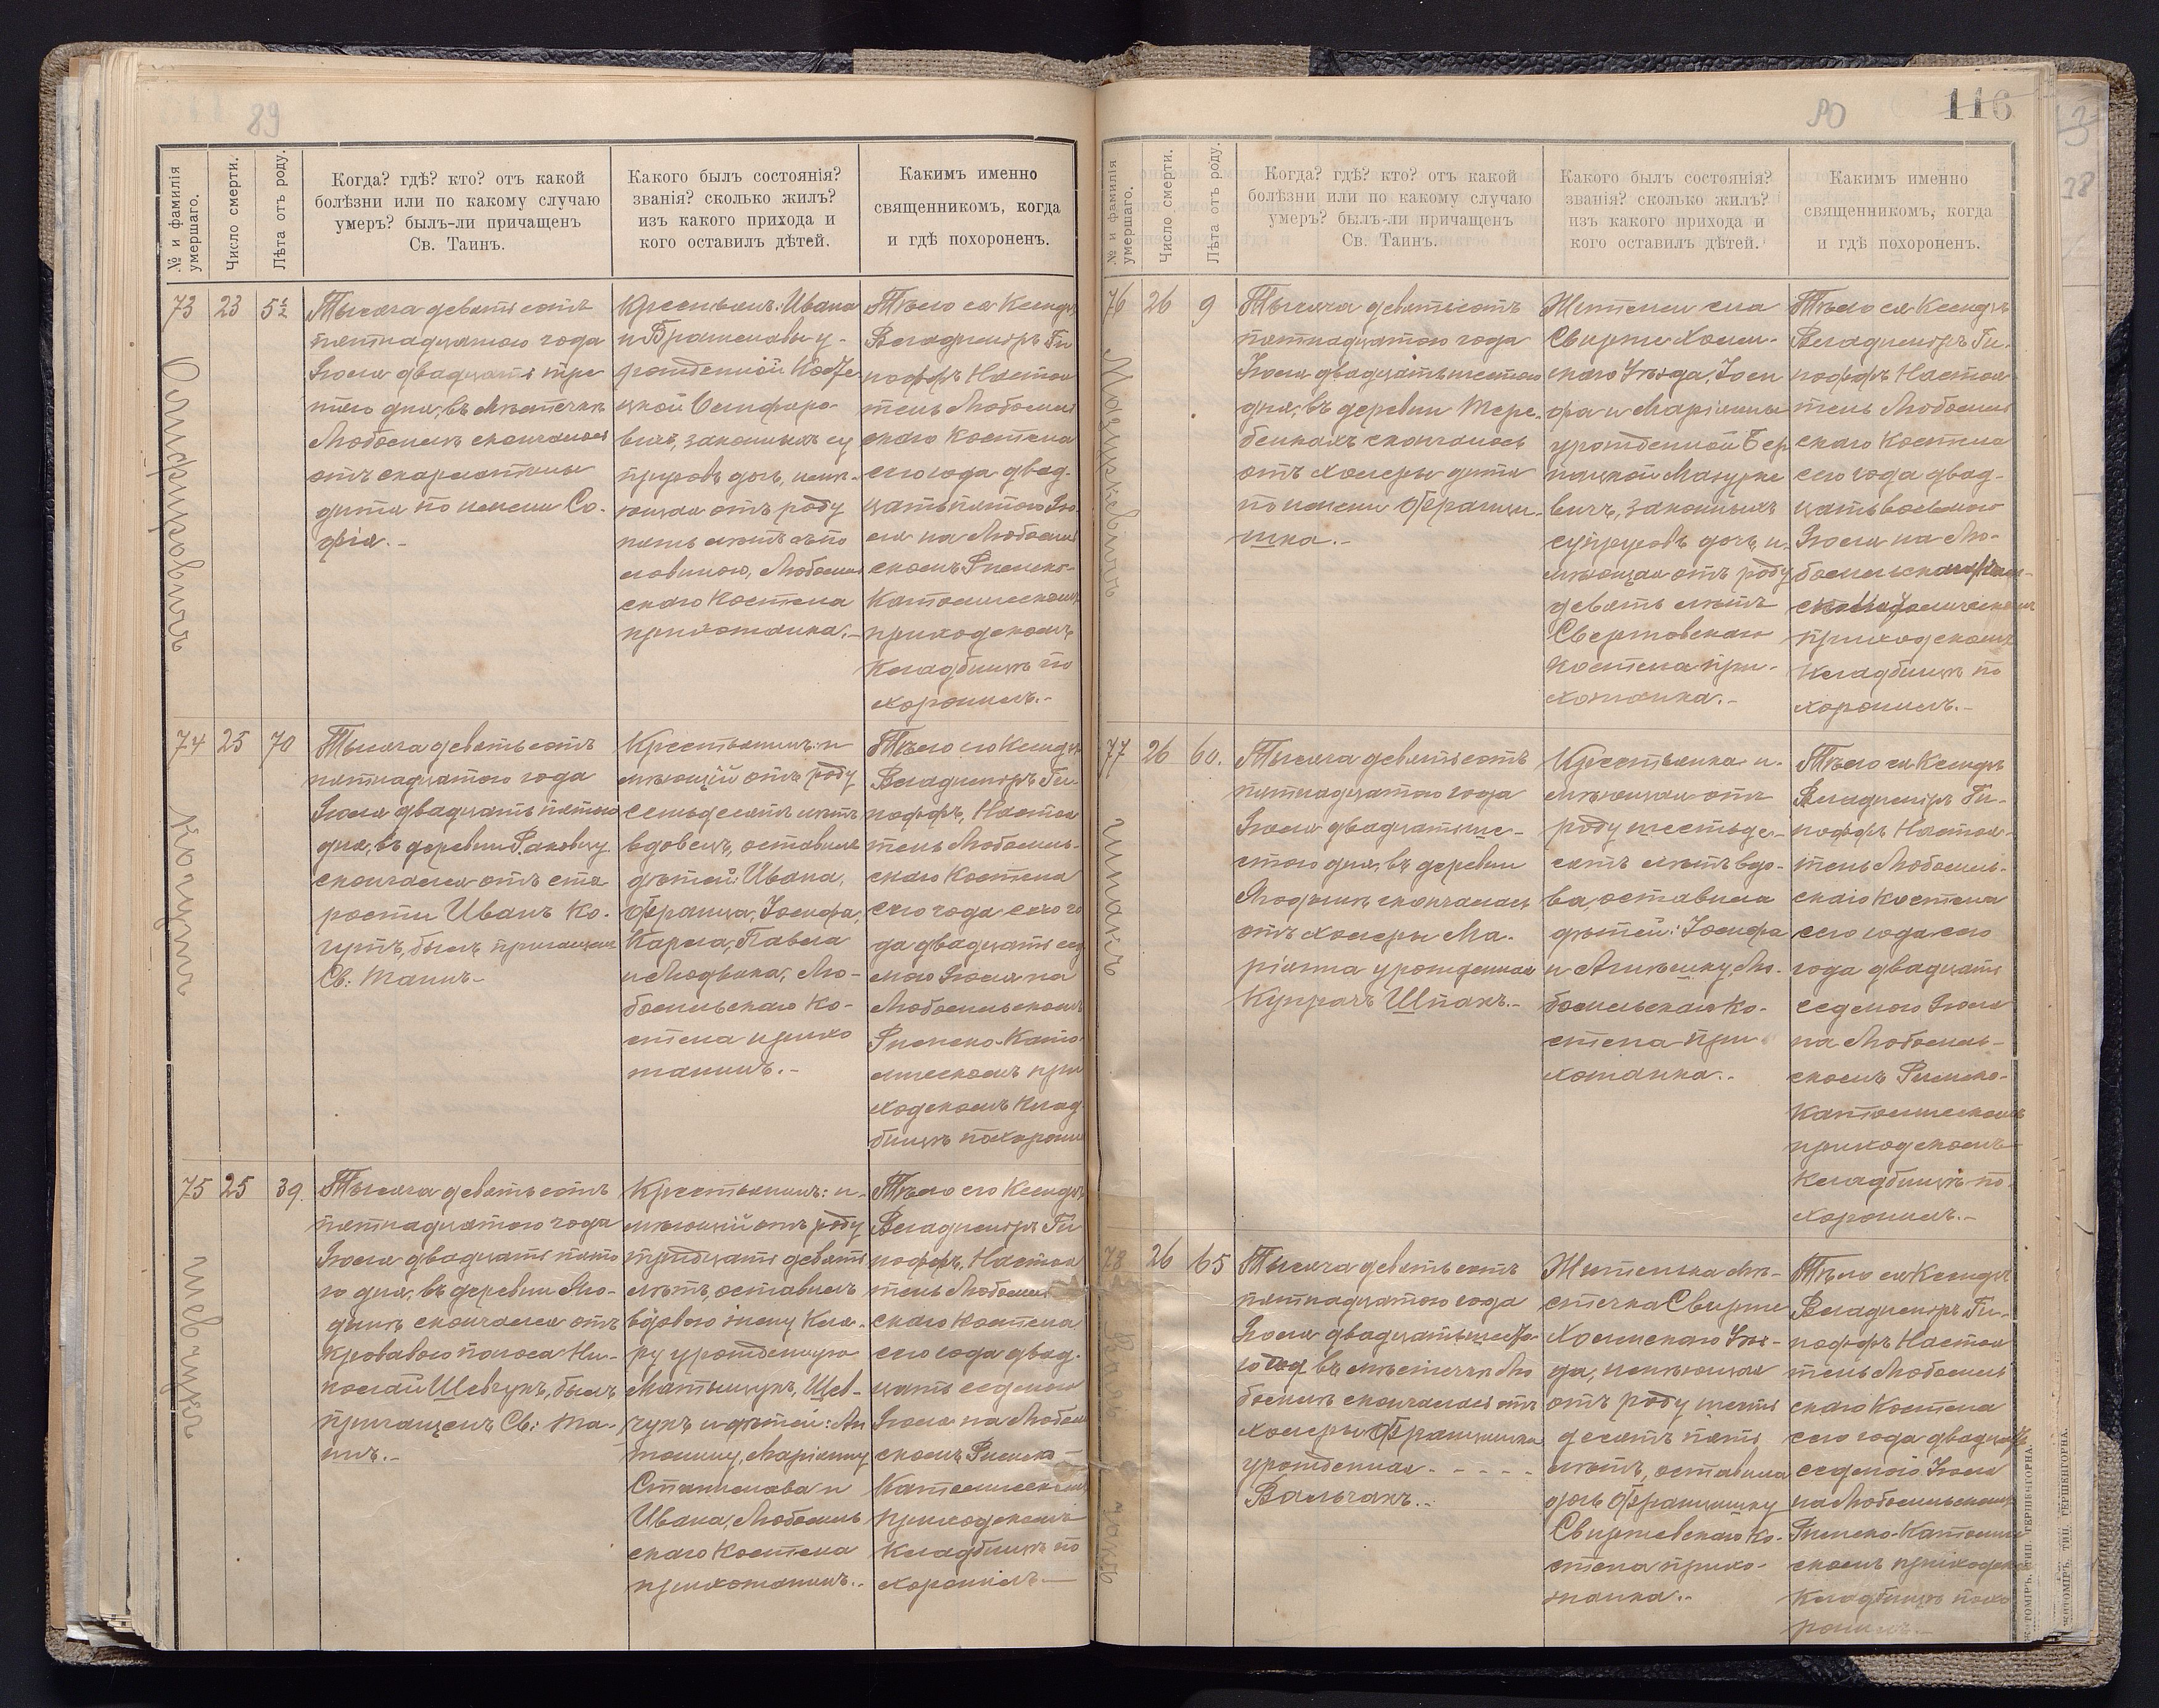 89
№ и фамилія умершаго.
Число смерти.
Лѣта отъ роду.
Когда? гдѣ? кто? отъ какой
болѣзни или по какому случаю
умеръ? былъ-ли причащенъ
Св. Таинъ.
Какого былъ состоянія?
званія? сколько жилъ?
изъ какого прихода и
кого оставилъ дѣтей.
Какимъ именно
священникомъ, когда
и гдѣ похороненъ.
73
23
5½
Тысяча девятьсотъ
пятнадцатого года
Іюля двадцать тре
тяго дня, въ мѣстечкѣ
Любомлѣ скончалось
отъ скарлатины
дитя по имени Со-
фія.-
Крестьянъ: Ивана
и Брониславы у-
рожденной
цкой
вичъ, законныхъ су
пруговъ дочь, имѣ-
ющая отъ роду
пять лѣтъ съ по
ловиною, Любомль
скаго Костела
прихожанка.-
Тѣло ея Ксендзъ
Владиміръ Ги
поффъ Настоя
тель Любомль
скаго Костела
сего года двад-
цать пятого Ію-
ля на Любомль
скомъ Римско-
Католическомъ
приходскомъ
Кладбищѣ по
хоронилъ.-
74
25
70
Когутъ
Тысяча девятьсотъ
пятнадцатого года
Іюля двадцать пятого
дня, въ деревни
скончался отъ ста
рости Иванъ Ко-
гутъ, былъ причащенъ
Св: Таинъ-
Крестьянинъ: и
мѣющій отъ роду
семьдесятъ лѣтъ
вдовецъ, оставилъ
дѣтей: Ивана,
Франца, Іосифа,
Карла, Павла
и Людвика, Лю-
бомльскаго Ко-
стела прихо
жанинъ.-
Тѣло его Ксендзъ
Владиміръ Ги-
поффъ, Настоя
тель Любомль-
скаго Костела
сего года сего го
да двадцать сед
мого Іюля на
Любомльскомъ
Римско-Като
лическомъ при
ходскомъ Клад
бищѣ похорони
75
25
39.
Шевчукъ
Тысяча девятьсотъ
пятнадцатого года
Іюля двадцать пято
го дня, въ деревни
скончался отъ
кроваваго поноса Ни-
колай Шевчукъ, былъ
причащенъ Св: Та-
инъ.-
Крестьянинъ: и-
мѣющій отъ роду
тридцать девять
лѣтъ, оставилъ
вдовою жену Кля-
ру урожденную
Матыщукъ, Шев-
чукъ и дѣтей: Ан
тонину, Маріанну
Станислава и
Ивана, Любомль
скаго Костела
прихожанинъ.-
Тѣло его Ксендзъ
Владиміръ Ги
поффъ, Настоя
тель Любомль
скаго Костела
сего года двад-
цать седмого
Іюля на Любомль
скомъ Римско-
Католическомъ
приходскомъ
Кладбищѣ по
хоронилъ.-
116
№ и фамилія умершаго.
Число смерти.
Лѣта отъ роду.
Когда? гдѣ? кто? отъ какой
болѣзни или по какому случаю
умеръ? былъ-ли причащенъ
Св. Таинъ.
Какого былъ состоянія?
званія? сколько жилъ?
изъ какого прихода и
кого оставилъ дѣтей.
Какимъ именно
священникомъ, когда
и гдѣ похороненъ.
76
26
9
Мазуркевичъ
Тысяча девятьсотъ
пятнадцатого года
Іюля двадцать шестого
дня, въ деревни Тере-
бейкахъ скончалось
отъ холеры дитя
по имени Франци-
шка.-
Жители
Свирже Холм-
скаго Уѣзда, Іоси
фа и Маріанны
урожденной
Мазурке
вичъ, законныхъ
супруговъ дочь, и-
мѣющая отъ роду
девять лѣтъ
Свержовскаго
Костела при-
хожанка.-
Тѣло ея Ксендзъ
Владиміръ Ги-
поффъ Настоя
тель Любомль
скаго Костела
сего года двад-
цать восьмого
Іюля на Лю-
приходскомъ
Кладбищѣ по
хоронилъ.-
77
26
60.
Шпакъ
Тысяча девятьсотъ
пятнадцатого года
Іюля двадцать ше-
стого дня, въ деревни
скончалась
отъ холеры Ма-
ріанна урожденная
Купрачъ Шпакъ.-
Крестьянка и-
мѣющая отъ
роду шестьде-
сятъ лѣтъ вдо-
ва, оставила
дѣтей: Іосифа
и Агнѣшку, Лю-
бомльскаго Ко-
стела при
хожанка.-
Тѣло ея Ксендзъ
Владиміръ Ги-
поффъ Настоя-
тель Любомль-
скаго Костела
сего года сего
года двадцать
седмого Іюля
на Любомль-
скомъ Римско-
Католическомъ
приходскомъ
Кладбищѣ по-
хоронилъ.-
78
26
65
Тысяча девятьсотъ
пятнадцатого года
Іюля двадцать шесто-
го въ мѣстечкѣ Лю
бомлѣ скончалась отъ
холеры Францишка
урожденная - - - -
Вальчакъ.-
Жителька мѣ-
стечка Свирже
Холмскаго Уѣз-
да, имѣющая
отъ роду шесть
десятъ пять
лѣтъ, оставила
дочь Францишку
Свиржевскаго Ко-
стела прихо-
жанка.-
Тѣло ея Ксендзъ
Владиміръ Ги-
поффъ Настоя
тель Любомль
скаго Костела
сего года двадцать
седмого Іюля
на Любомльскомъ
Римско-Католи
скомъ приходск
Кладбищѣ похо
ронилъ.-
ЖИТОМІРЪ, ТИП. ГЕРШЕНГОРНА.